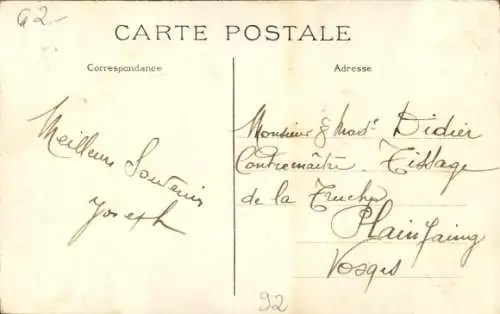 62-
CARTE POSTALE
Correspondance
Meilleur Souvenir
Joseph
Adresse
Monsieur & Mad^e Didier
Contremaître Tissage
de la Truche
Plainfaing
Vosges
92